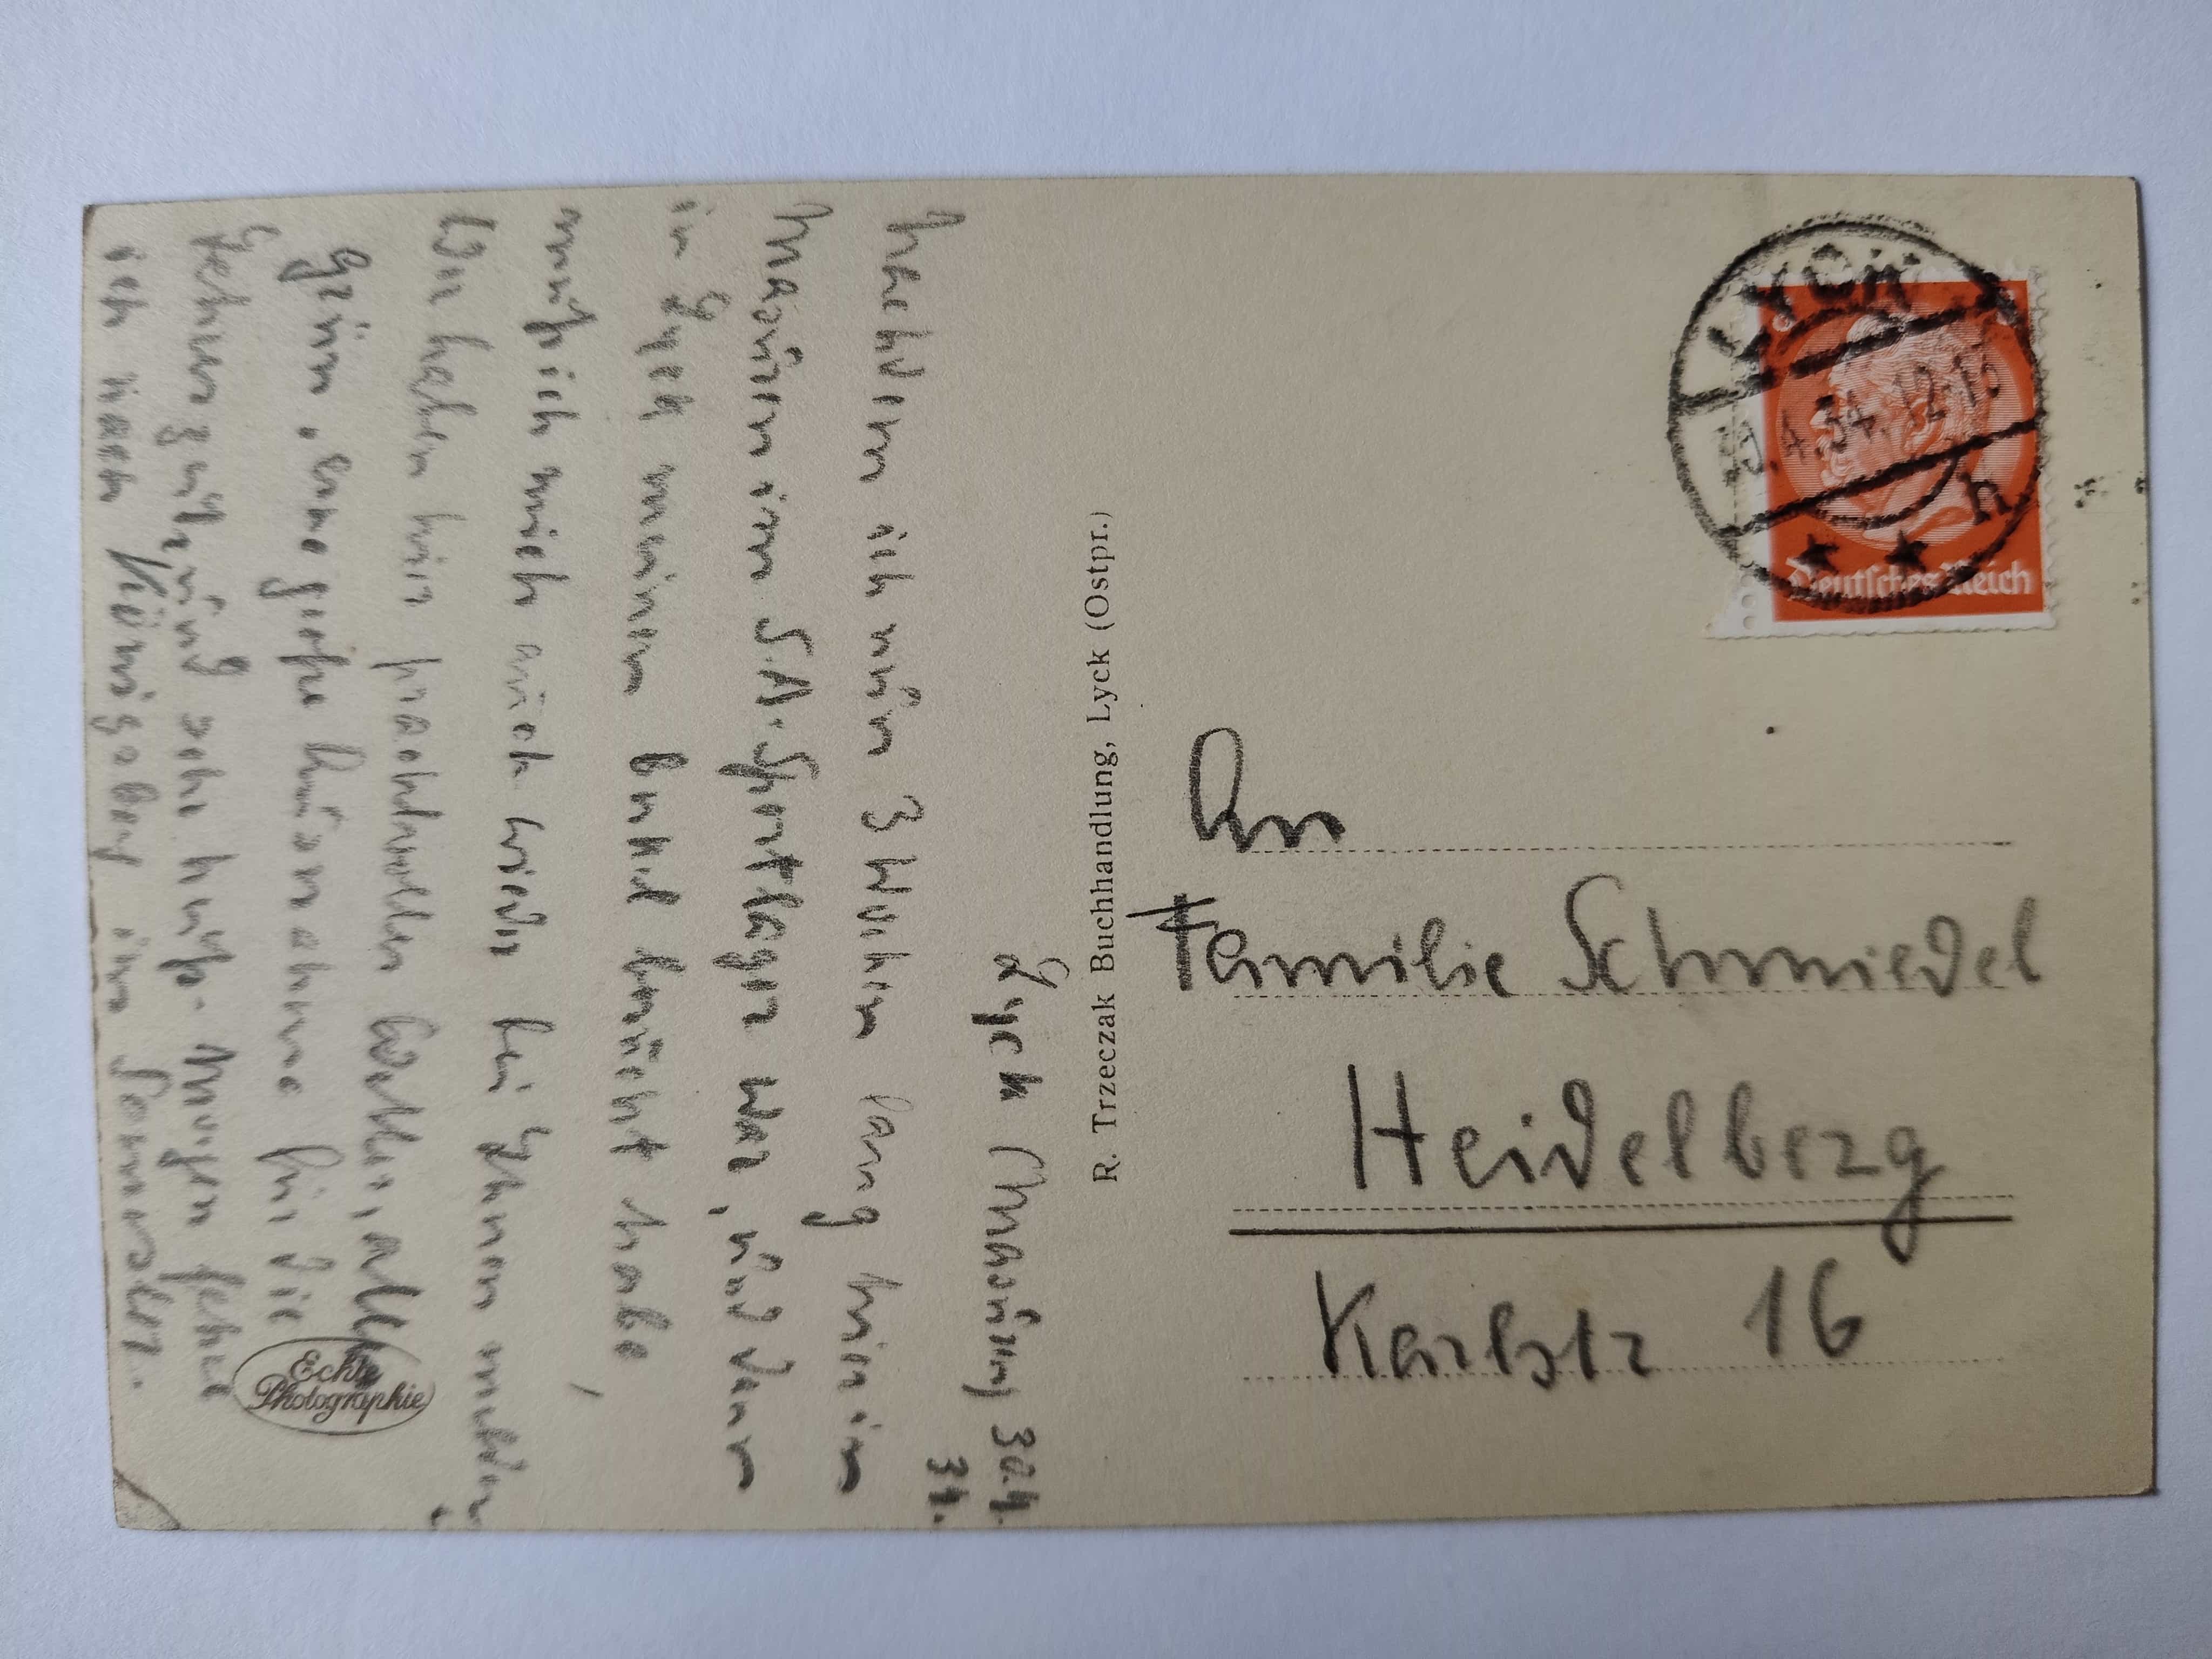 Lyck (Masuren) 30.4.
34.
Nachdem ich nun 3 Wochen lang hier in
Masuren im S.A. Sportlager war, und dann
in Lyck meinen besucht habe,
muß ich mich auch wieder bei Ihnen melden.
Wir haben hier prachtvolles Wetter, alles
grün, eine große Ausnahme für die
Gegend sehr heiß. Morgen fahre
ich nach Königsberg ins Semester.
Echte
Photographie
R. Trzeczak Buchhandlung, Lyck (Ostpr.)
LYCK
.4.34. 12-13
h
Deutsches Reich
An
Familie Schmiedel
Heidelberg
Karlstr 16